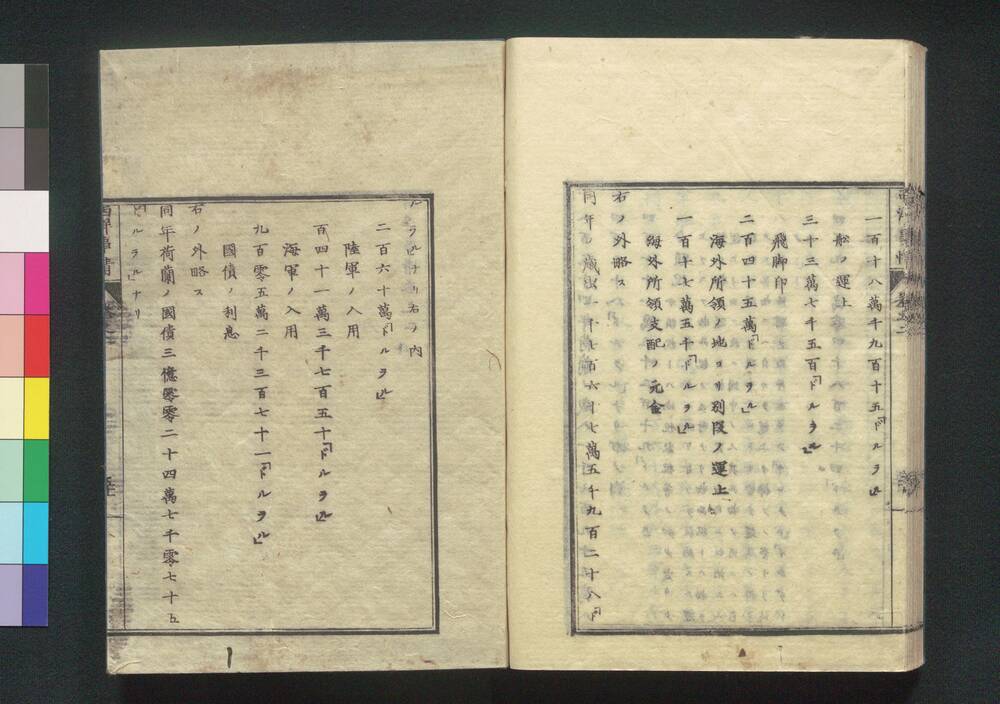 一百十八萬千九百十五「ドルラル」
船ノ運上
三十三萬七千五百「ドルラル」
飛脚印
二百四十五萬「ドルラル」
海外所領ノ地ヨリ別段ノ運上
一百十七萬五千「ドルラル」
海外所領支配ノ元金
右ノ外略ス
同年ノ歳出一千九百六十七萬五千九百二十八「ド
ルラル」ナリ右ノ内
二百六十萬「ドルラル」
陸軍ノ入用
百四十一萬三千七百五十「ドルラル」
海軍ノ入用
九百零五萬二千三百七十一「ドルラル」
國債ノ利息
右ノ外略ス
同年荷蘭ノ國債三億零零二十四萬七千零七十五
「ドルラル」ナリ
西洋事情